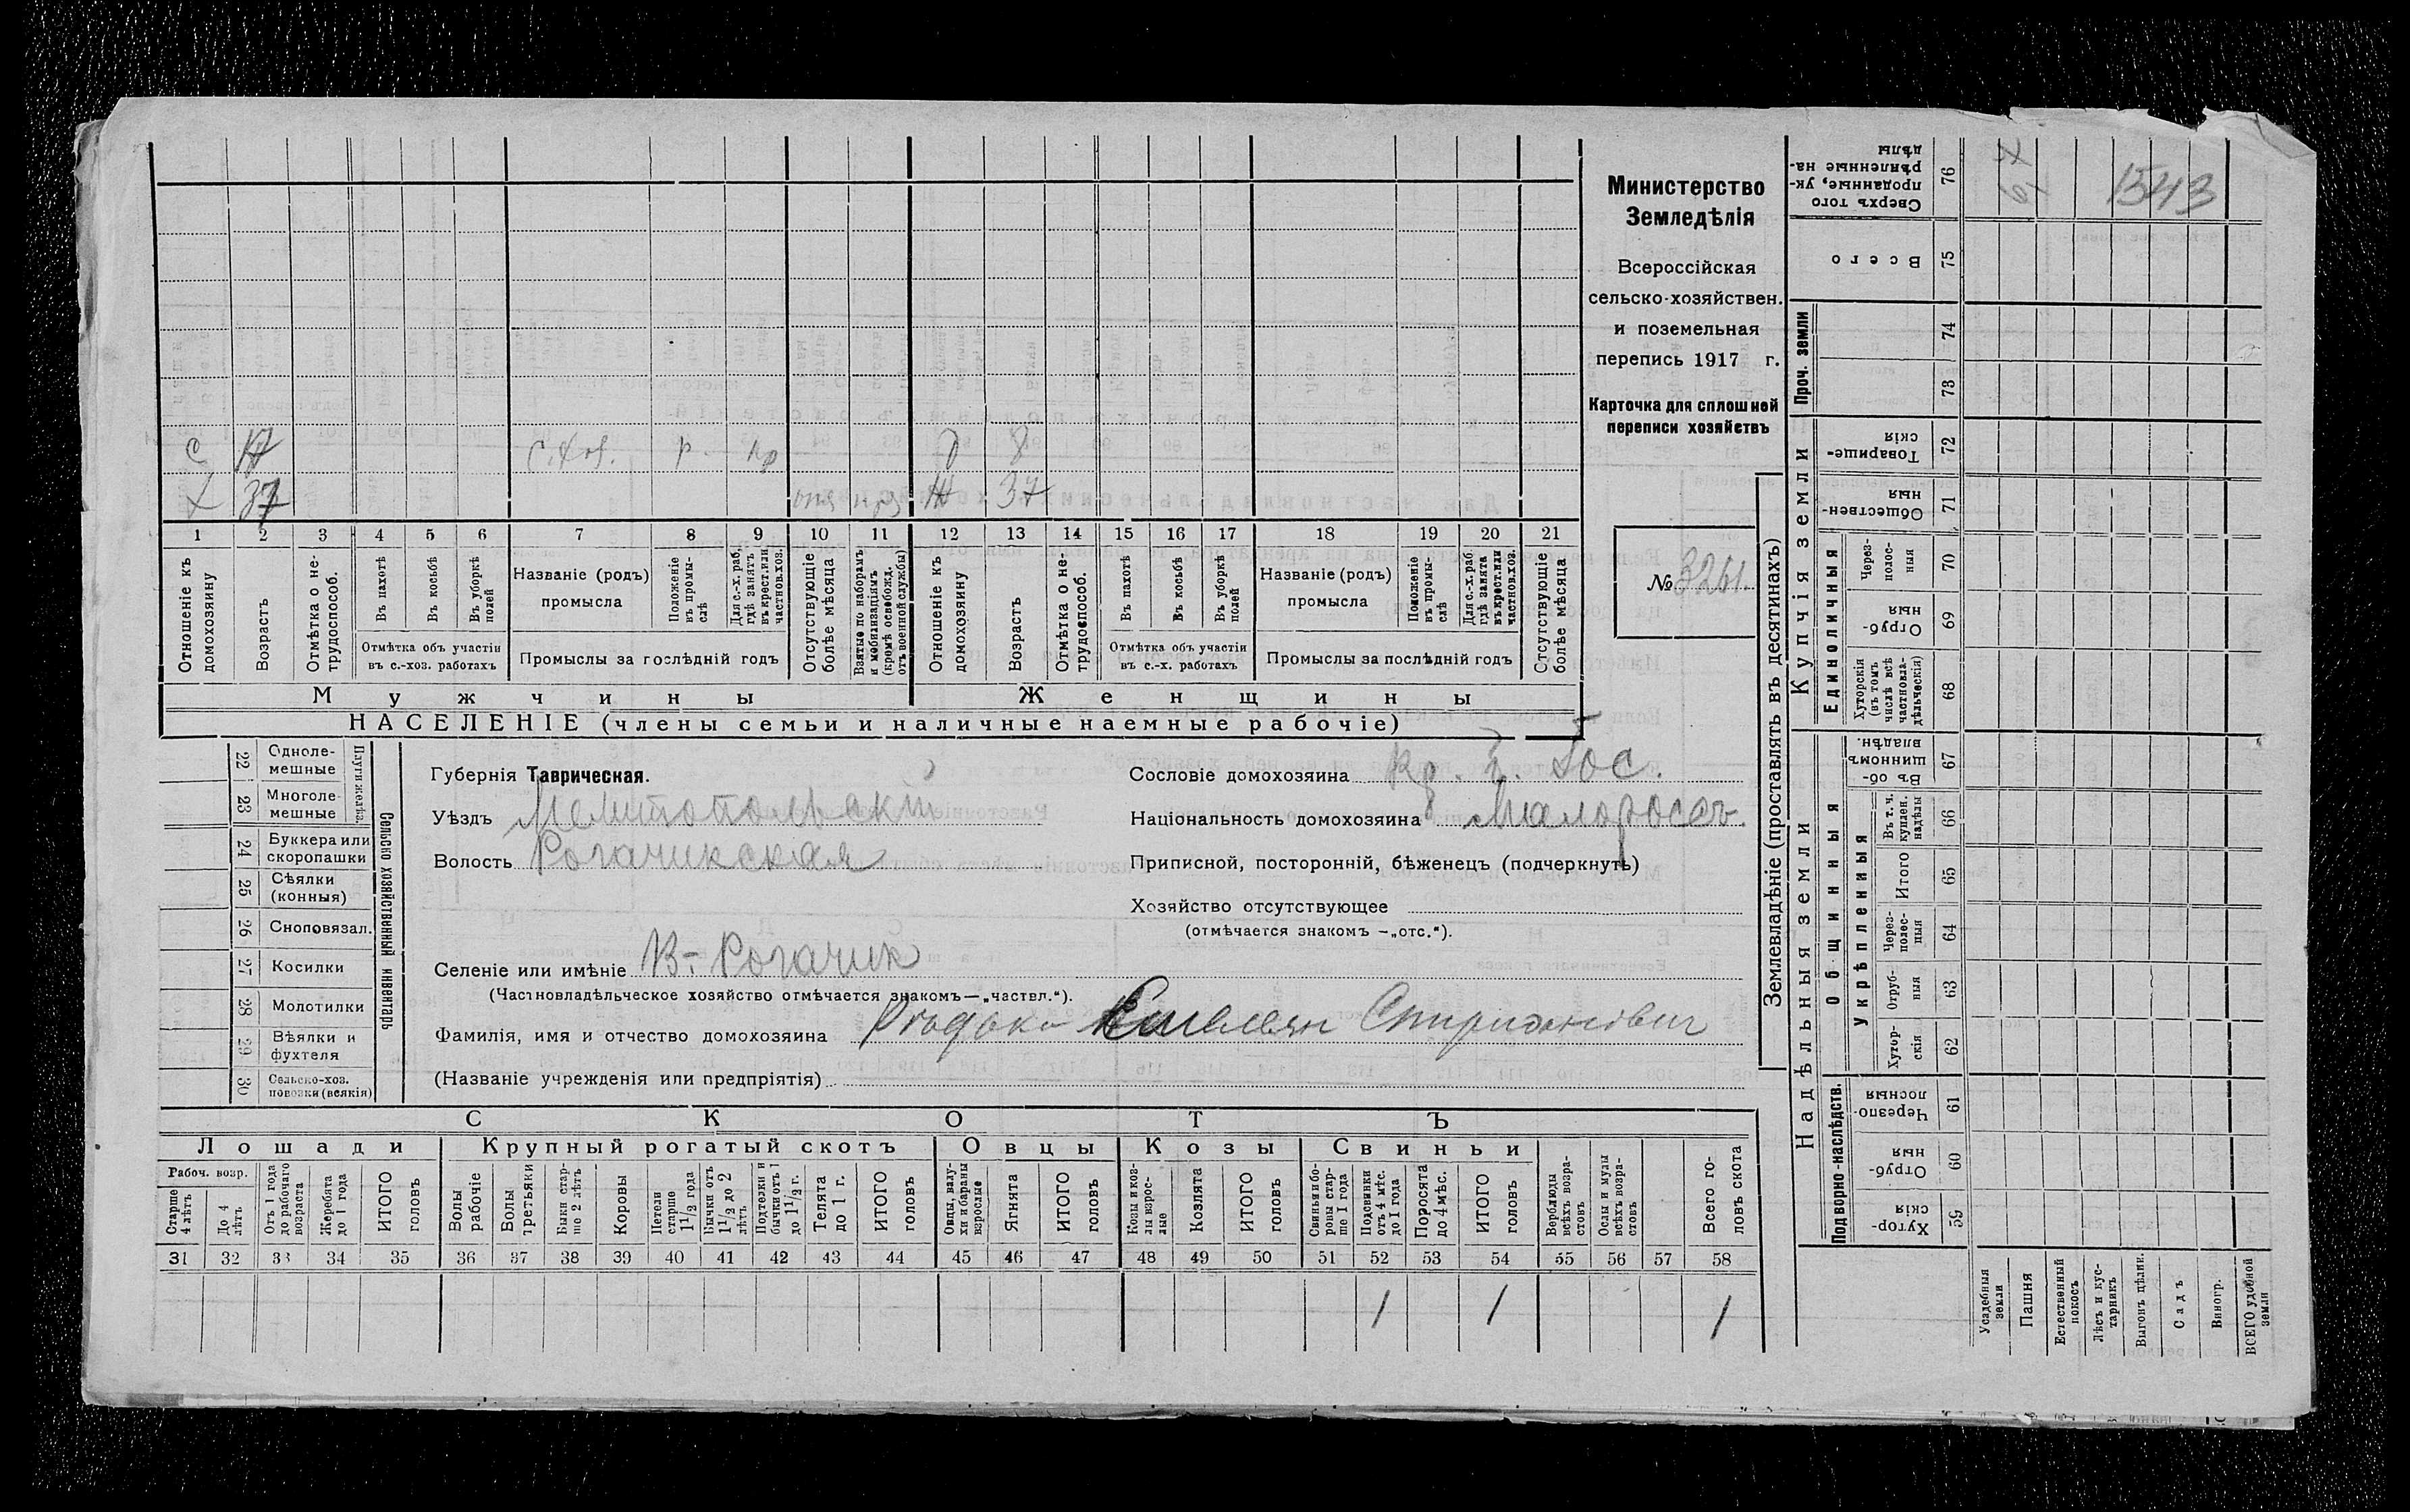 Министерство
Земледѣлія
Всероссійская
сельско-хозяйствен.
и поземельная
перепись 1917 г.
Карточка для сплошной
переписи хозяйствъ
№ 3261
с 17 с.хоз. р. кр д 8
х 37 отс Ж 37
1 2 3 4 5 6 7 8 9 10 11 12 13 14 15 16 17 18 19 20 21
Отношеніе къ домохозяину
Возрастъ
Отмѣтка о не-трудоспособ.
Въ пахотѣ
Въ косьбѣ
Въ уборкѣ полей
Отмѣтка объ участіи въ с.-хоз. работахъ
Названіе (родъ) промысла
Положеніе въ промы-слѣ
Для с.-х. раб, гдѣ занятъ въ крест. или частнов. хоз.
Промыслы за послѣдній годъ
Отсутствующіе болѣе мѣсяца
Взятые по наборамъ и мобилизаціямъ (кромѣ освобожд. отъ военной службы)
Отношеніе къ домохозяину
Возрастъ
Отмѣтка о не-трудоспособ.
Въ пахотѣ
Въ косьбѣ
Въ уборкѣ полей
Отмѣтка объ участіи въ с.-х. работахъ
Названіе (родъ) промысла
Положеніе въ промы-слѣ
Для с.-х. раб. гдѣ занята въ крест. или частнов. хоз.
Промыслы за послѣдній годъ
Отсутствующіе болѣе мѣсяца
Мужчины Женщины
НАСЕЛЕНІЕ (члены семьи и наличные наемные рабочіе)
Сельско хозяйственный инвентарь
Плуги желѣз.
22 Одноле-мешные
23 Многоле-мешные
24 Буккера или скоропашки
25 Сѣялки (конныя)
26 Сноповязал.
27 Косилки
28 Молотилки
29 Вѣялки и фухтеля
30 Сельско-хоз. повозки (всякія)
Губернія Таврическая.
Уѣздъ Мелитопольскій
Волость Рогачикская
Селеніе или имѣніе В.-Рогачик
(Частновладѣльческое хозяйство отмѣчается знакомъ—„частвл.“).
Фамилія, имя и отчество домохозяина Емельян Спиридонович
(Названіе учрежденія или предпріятія)
Сословіе домохозяина кр. б. Гос.
Національность домохозяина малороссъ
Приписной, посторонній, бѣженецъ (подчеркнуть)
Хозяйство отсутствующее
(отмѣчается знакомъ —„отс.“).
СКОТЪ
Лошади Крупный рогатый скотъ Овцы Козы Свиньи
Рабоч. возр.
Старше 4 лѣтъ
До 4 лѣтъ
Отъ 1 года до рабочаго возраста
Жеребята до 1 года
ИТОГО головъ
Волы рабочіе
Волы третьяки
Быки стар-ше 2 лѣтъ
Коровы
Нетели старше 1 1/2 года
Бычки отъ 1 1/2 до 2 лѣтъ
Подтелки и бычки отъ 1 до 1 1/2 г.
Телята до 1 г.
ИТОГО головъ
Овцы, валу-хи и бараны взрослые
Ягнята
ИТОГО головъ
Козы и коз-лы взрос-лые
Козлята
ИТОГО головъ
Свиньи и бо-ровы стар-ше 1 года
Подсвинки отъ 4 мѣс. до 1 года
Поросята до 4 мѣс.
ИТОГО головъ
Верблюды всѣхъ возра-стовъ
Ослы и мулы всѣхъ возра-стовъ
Всего го-ловъ скота
31 32 33 34 35 36 37 38 39 40 41 42 43 44 45 46 47 48 49 50 51 52 53 54 55 56 57 58
1 1 1
Землевладѣніе (проставлять въ десятинахъ)
Надѣльныя земли
Купчія земли
Подворно-наслѣдств.
Общинныя
Укрѣпленныя
Единоличныя
Проч. земли
Хутор-скія 59
Отруб-ныя 60
Черезпо-лосныя 61
Хутор-скія 62
Отруб-ныя 63
Через-полос-ныя 64
Итого 65
Въ т. ч. куплен. надѣлы 66
Въ об-щинномъ владѣн. 67
Хуторскія (въ томъ числѣ всѣ частновла-дѣльческія) 68
Отруб-ныя 69
Через-полос-ныя 70
Обществен-ныя 71
Товарище-скія 72
73
74
Всего 75
Сверхъ того проданные, ук-рѣпленные на-дѣлы 76
Усадебныя земли
Пашня
Естественный покосъ
Лѣсъ и кус-тарникъ
Выгонъ цѣлин.
Садъ
Виногр.
ВСЕГО удобной земли
1543